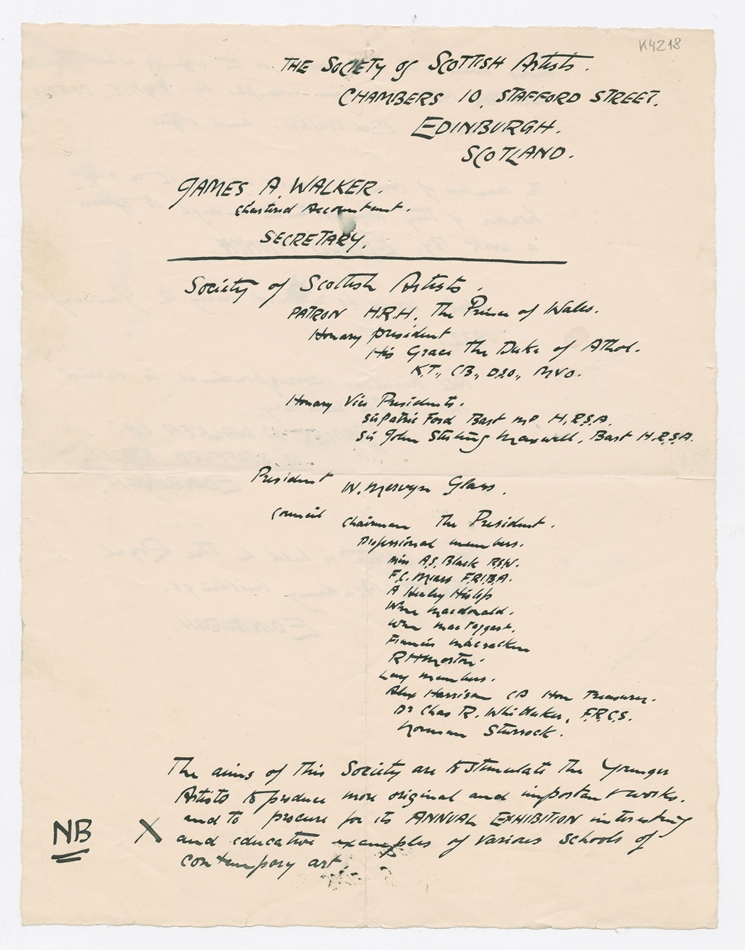 K4218
THE SOCIETY of SCOTTISH Artists.
CHAMBERS 10, STAFFORD STREET.
EDINBURGH.
SCOTLAND.
JAMES A. WALKER.
Chartered Accountant.
SECRETARY.
Society of Scottish Artists.
PATRON H.R.H. The Prince of Wales.
Honary president
His Grace The Duke of Athol.
K.T., C.B., D.S.O., M.V.O.
Honary Vice Presidents.
Sir Patric Ford Bart MP H.R.S.A.
Sir John Stirling Maxwell, Bart H.R.S.A.
President W. Mervyn Glass.
Council Chairman The President.
Professional members.
Miss A.S. Black R.S.W.
F.C. Mears F.R.I.B.A.
A Henley Hislop
Wm Macdonald.
Wm MacTaggart.
Francis
R H Morton.
Lay members.
Alex Harrison CA Hon Treasurer.
Dr Chas R. Whittaker, F.R.C.S.
Norman Sturrock.
The aims of This Society are to stimulate The Younger
Artists to produce more original and important works.
and to procure for its ANNUAL EXHIBITION interesting
NB X and educative examples of various schools of
contempory art.